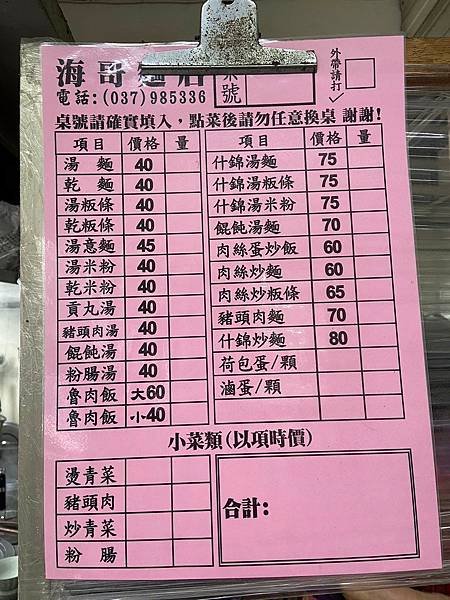 海哥麵店
桌號
外帶請打✓
電話:(037)985336
桌號請確實填入，點菜後請勿任意換桌 謝謝!
項目 價格 量 項目 價格 量
湯麵 40 什錦湯麵 75
乾麵 40 什錦湯粄條 75
湯粄條 40 什錦湯米粉 75
乾粄條 40 餛飩湯麵 70
湯意麵 45 肉絲蛋炒飯 60
湯米粉 40 肉絲炒麵 60
乾米粉 40 肉絲炒粄條 65
貢丸湯 40 豬頭肉麵 70
豬頭肉湯 40 什錦炒麵 80
餛飩湯 40 荷包蛋/顆
粉腸湯 40 滷蛋/顆
魯肉飯 大60
魯肉飯 小40
小菜類(以項時價)
燙青菜
豬頭肉
炒青菜
粉腸
合計: